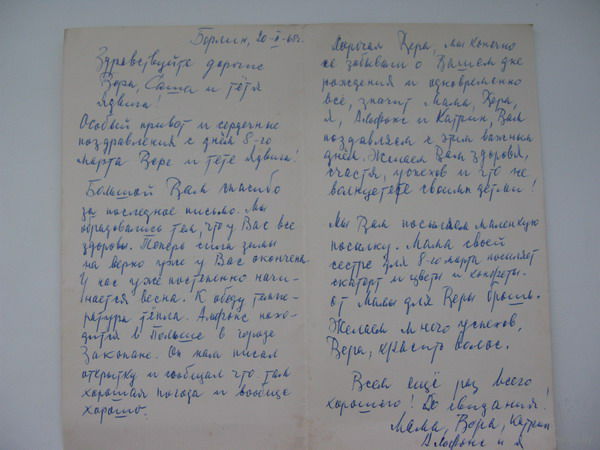 Берлин, 20-II-68г.
Здравствуйте дорогие
Вера, Саша и тётя
Ядвига!
Особый привет и сердечные
поздравления с днём 8-го
марта Вере и тёте Ядвиге!
Большой Вам спасибо
за последное письмо. Мы
обрадовались тем, что у Вас все
здоровы. Теперь сила зимы
на верно уже у Вас окончена.
У нас уже постепенно начи-
нается весна. К обеду темпе-
ратура тёпла. Альфонс нахо-
дится в Польше в городе
Закопане. Он нам писал
открытку и сообщал что там
хорошая погода и вообще
хорошо.
Дорогая Вера, мы конечно
не забывали о Вашем дне
рождения и одновременно
все, значит Мама, Вера,
я, Альфонс и Катрин, Вам
поздравляем к этим важным
днём. Желаем Вам здоровья,
счастья, успехов и что не
волнуетесь своими детми!
Мы Вам посылаем маленкую
посылку. Мама своей
сестре для 8-го марта посылает
скатерт и цветы и конфеты.
от Мамы для Веры брошь.
Желаем много успехов,
Вера, красить волос.
Всем ещё раз всего
хорошего! До свидания!
Мама, Вера, Катрин
Альфонс и я